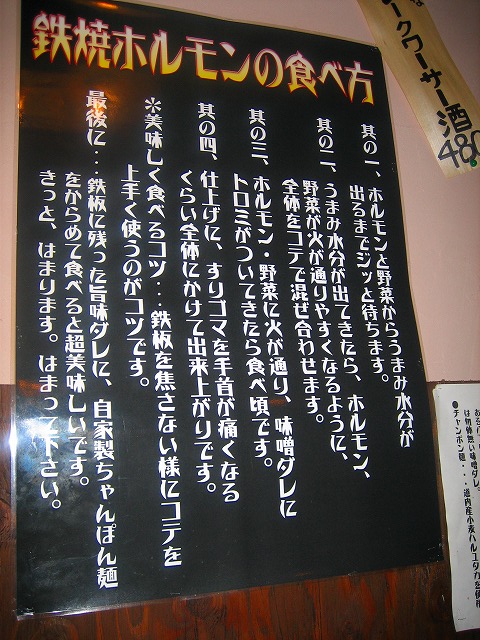 鉄焼ホルモンの食べ方
其の一、ホルモンと野菜からうまみ水分が
出るまでジッと待ちます。
其の二、うまみ水分が出てきたら、ホルモン、
野菜が火が通りやすくなるように、
全体をコテで混ぜ合わせます。
其の三、ホルモン・野菜に火が通り、味噌ダレに
トロミがついてきたら食べ頃です。
其の四、仕上げに、すりゴマを手首が痛くなる
くらい全体にかけて出来上がりです。
※美味しく食べるコツ…鉄板を焦さない様にコテを
上手く使うのがコツです。
最後に…鉄板に残った旨味ダレに、自家製ちゃんぽん麺
をからめて食べると超美味しいです。
きっと、はまります。はまって下さい。
ークワーサー酒
480
は勿体無い味噌ダレ。
●チャンポン麺・・・道内産小麦ハルユタカを使用